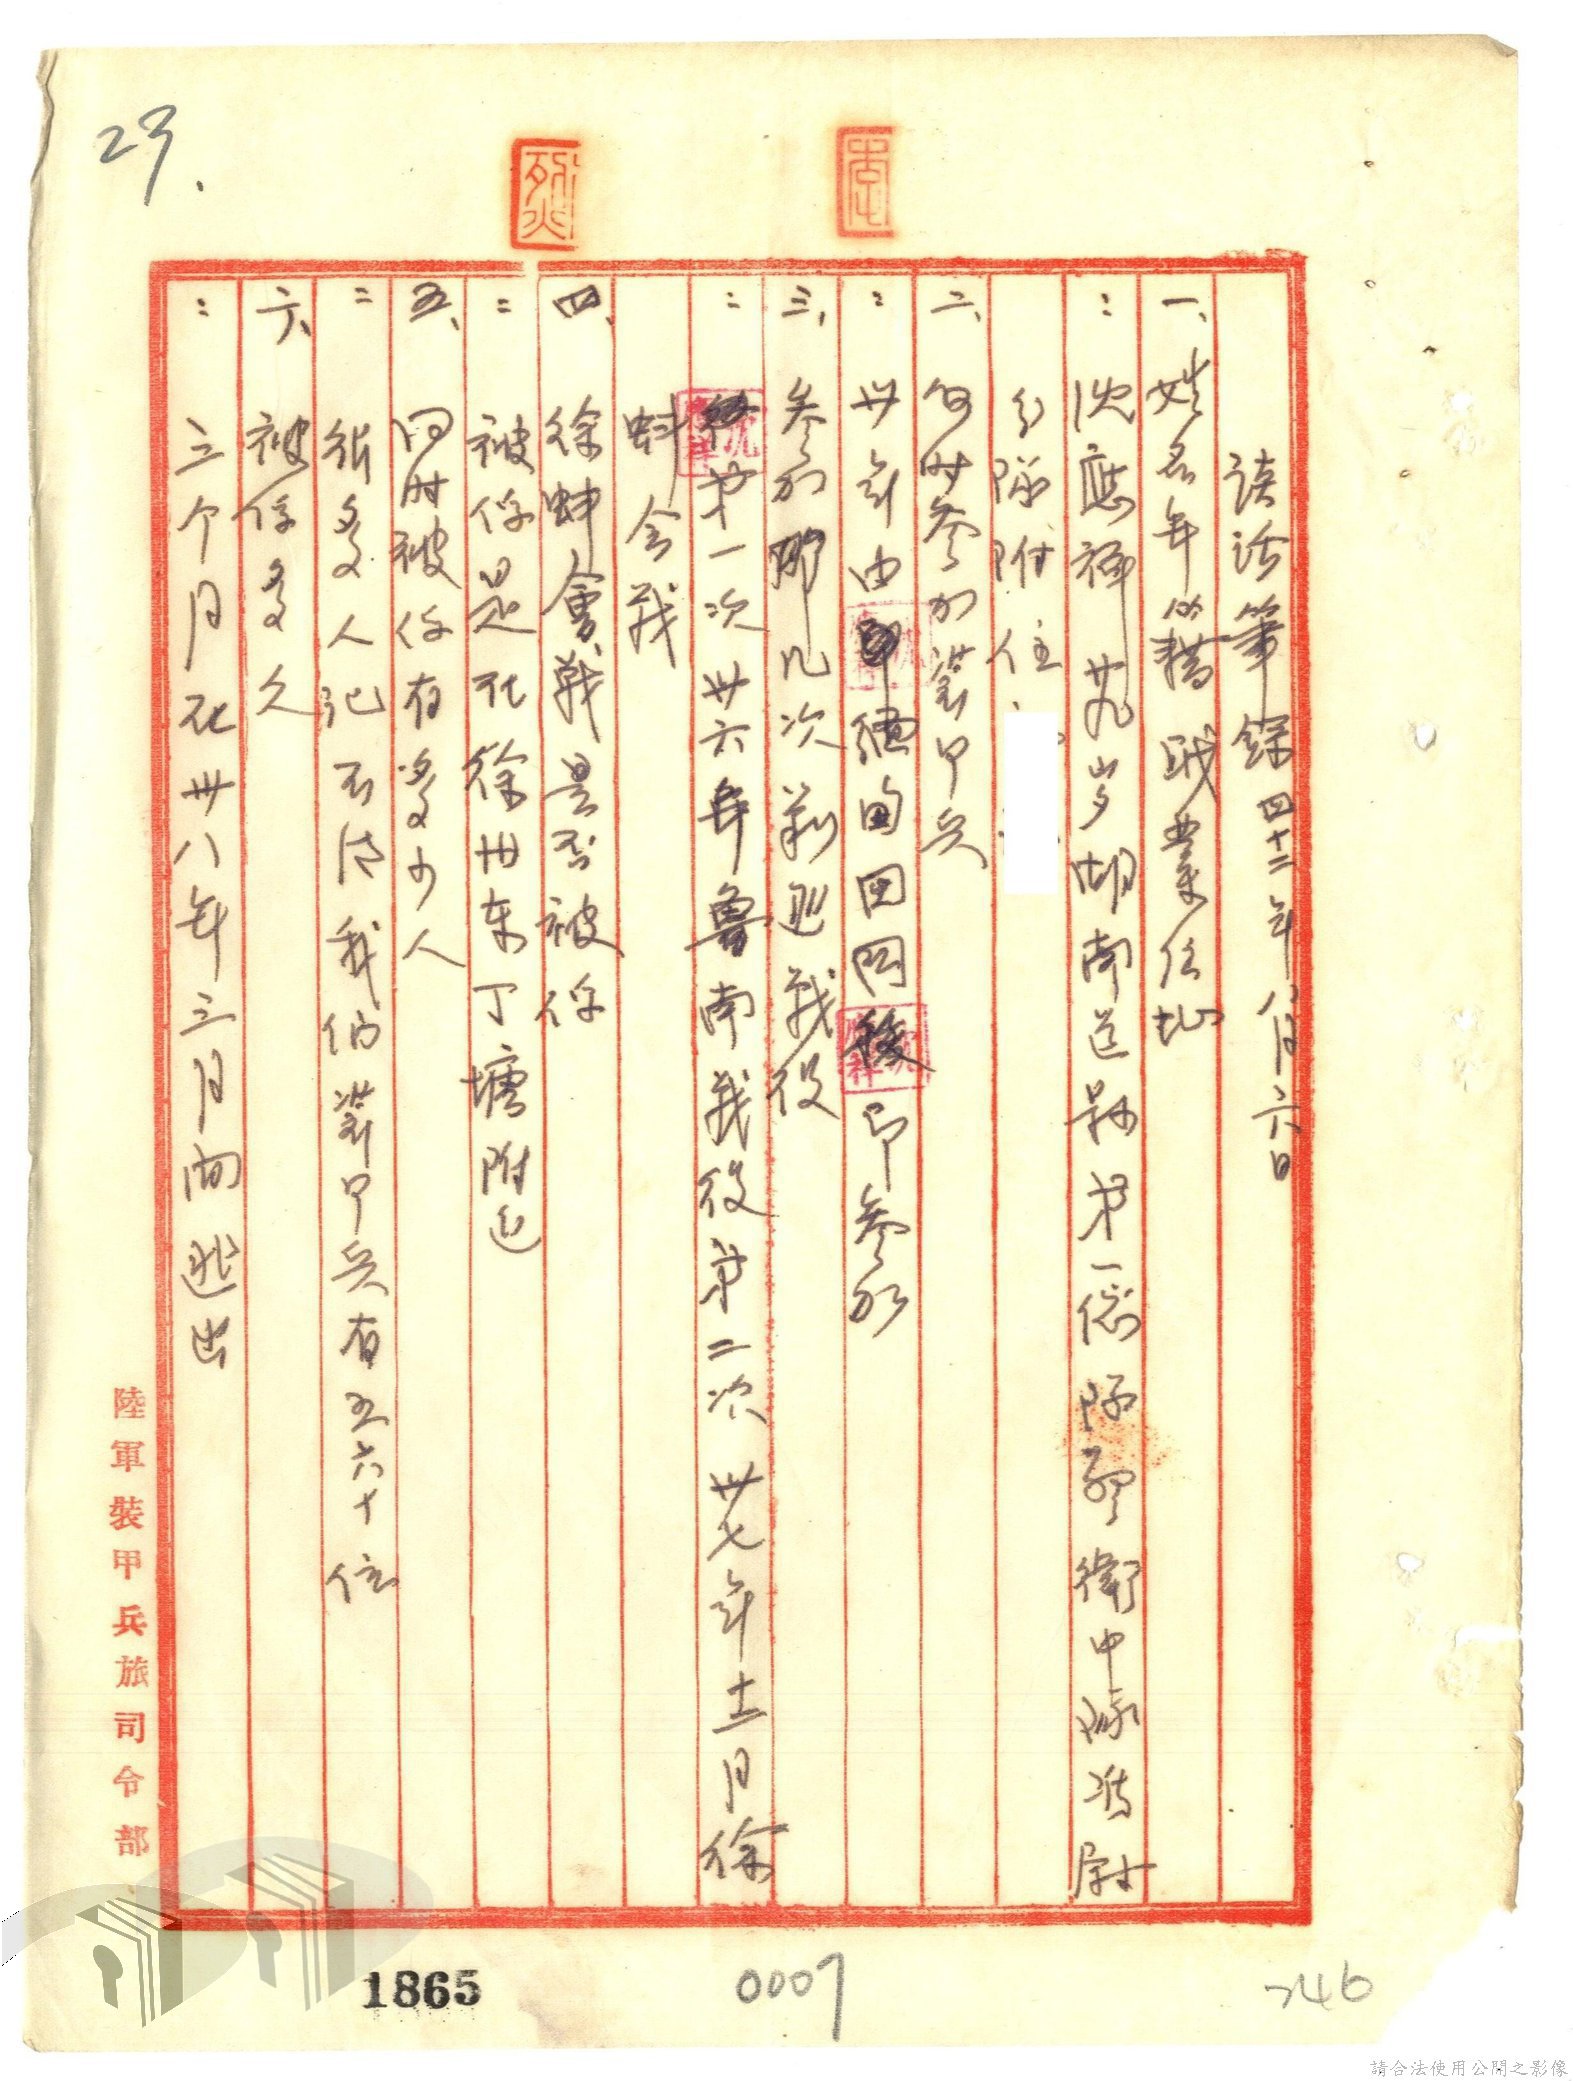 23.
烈
忠
談話筆錄 四十二年八月六日
一、姓名年籍职業住址
：沈應祥 廿九岁 湖南道县 第一總隊部衛中隊准尉
分隊附 住
二、何時参加裝甲兵
：卅年由 德 即参加
三、参加那几次剿匪戰役
：第一次卅六年魯南战役第二次卅七年十二月徐
蚌会战
四、徐蚌會戰是否被俘
：被俘是在徐州东丁塘附近
五、同时被俘有多少人
：很多人记不清我们装甲兵有五六十位
六、被俘多久
：三个月在卅八年三月间逃出
陸軍裝甲兵旅司令部
1865
0007
746
請合法使用公開之影像